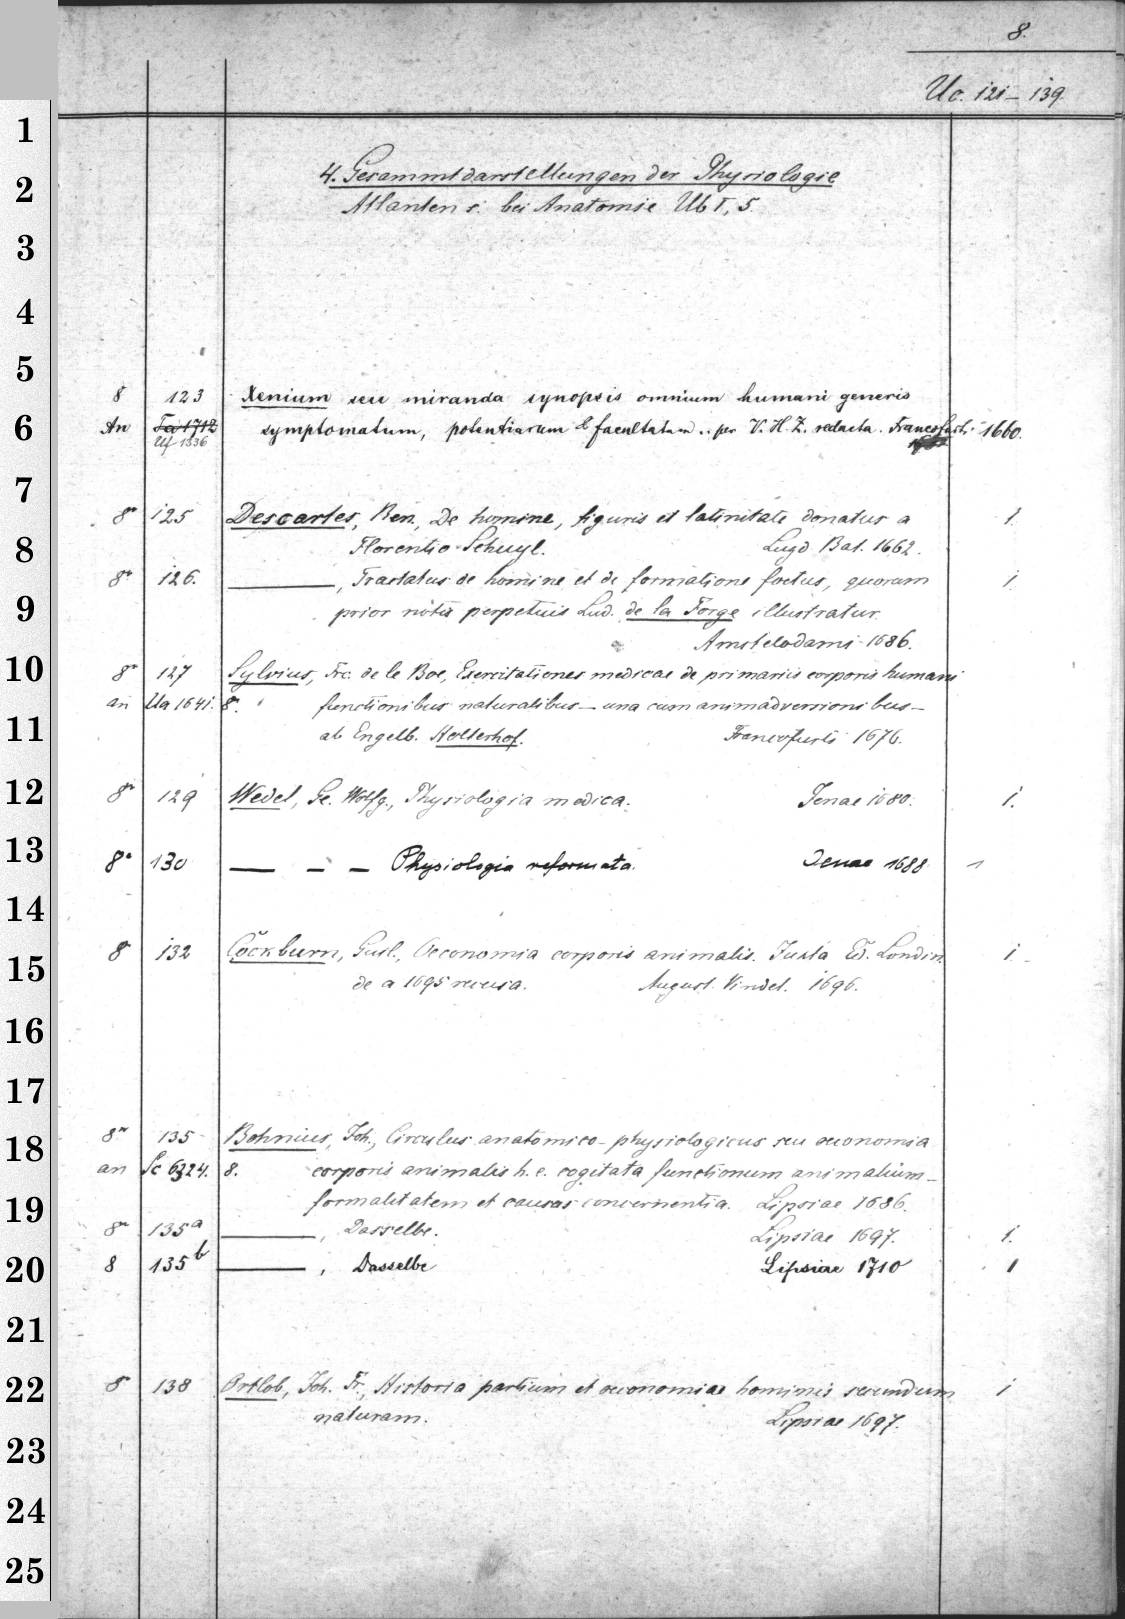 8.
Uc. 121 – 139.
1
2
4. Gesammtdarstellungen der Physiologie
Atlanten s. bei Anatomie Ub I, 5.
3
4
5
8 123 Xenium seu miranda synopsis omnium humani generis
6 An symptomatum, potentiarum & facultatum .. per V. H. Z. redacta. Francofurti 1660.
Uf 1336
7
8° 125 Descartes, Ren., De homine, figuris et latinitate donatus a 1.
8 Florentio Schuyl. Lugd. Bat. 1662.
8° 126. ———, Tractatus de homine et de formatione foetus, quorum 1.
9 prior notis perpetuis Lud. de la Forge illustratur.
Amstelodami 1686.
10 8° 127 Sylvius, Frc. de le Boe, Exercitationes medicae de primariis corporis humani
an Ua 1641. 8°. functionibus naturalibus – una cum animadversionibus –
11 ab Engelb. Holterhof. Francofurti 1676.
12 8° 129 Wedel, Ge. Wolfg., Physiologia medica. Jenae 1680. 1.
13 8° 130 — – – Physiologia reformata. Jenae 1688 1
14
15 8° 132 Cockburn, Guil., Oeconomia corporis animalis. Juxta Ed. Londin. 1.
de a 1695 recusa. August. Vindel. 1696.
16
17
18 8° 135 Bohnius, Joh., Circulus anatomico-physiologicus seu oeconomia
an Sc 6324. 8. corporis animalis h. e. cogitata functionum animalium –
19 formalitatem et causas concernentia. Lipsiae 1686.
8° 135a ———, Dasselbe. Lipsiae 1697. 1.
20 8 135b ———, Dasselbe Lipsiae 1710 1
21
22 8° 138 Ortlob, Joh. Fr., Historia partium et oeconomiae hominis secundum 1
naturam. Lipsiae 1697.
23
24
25